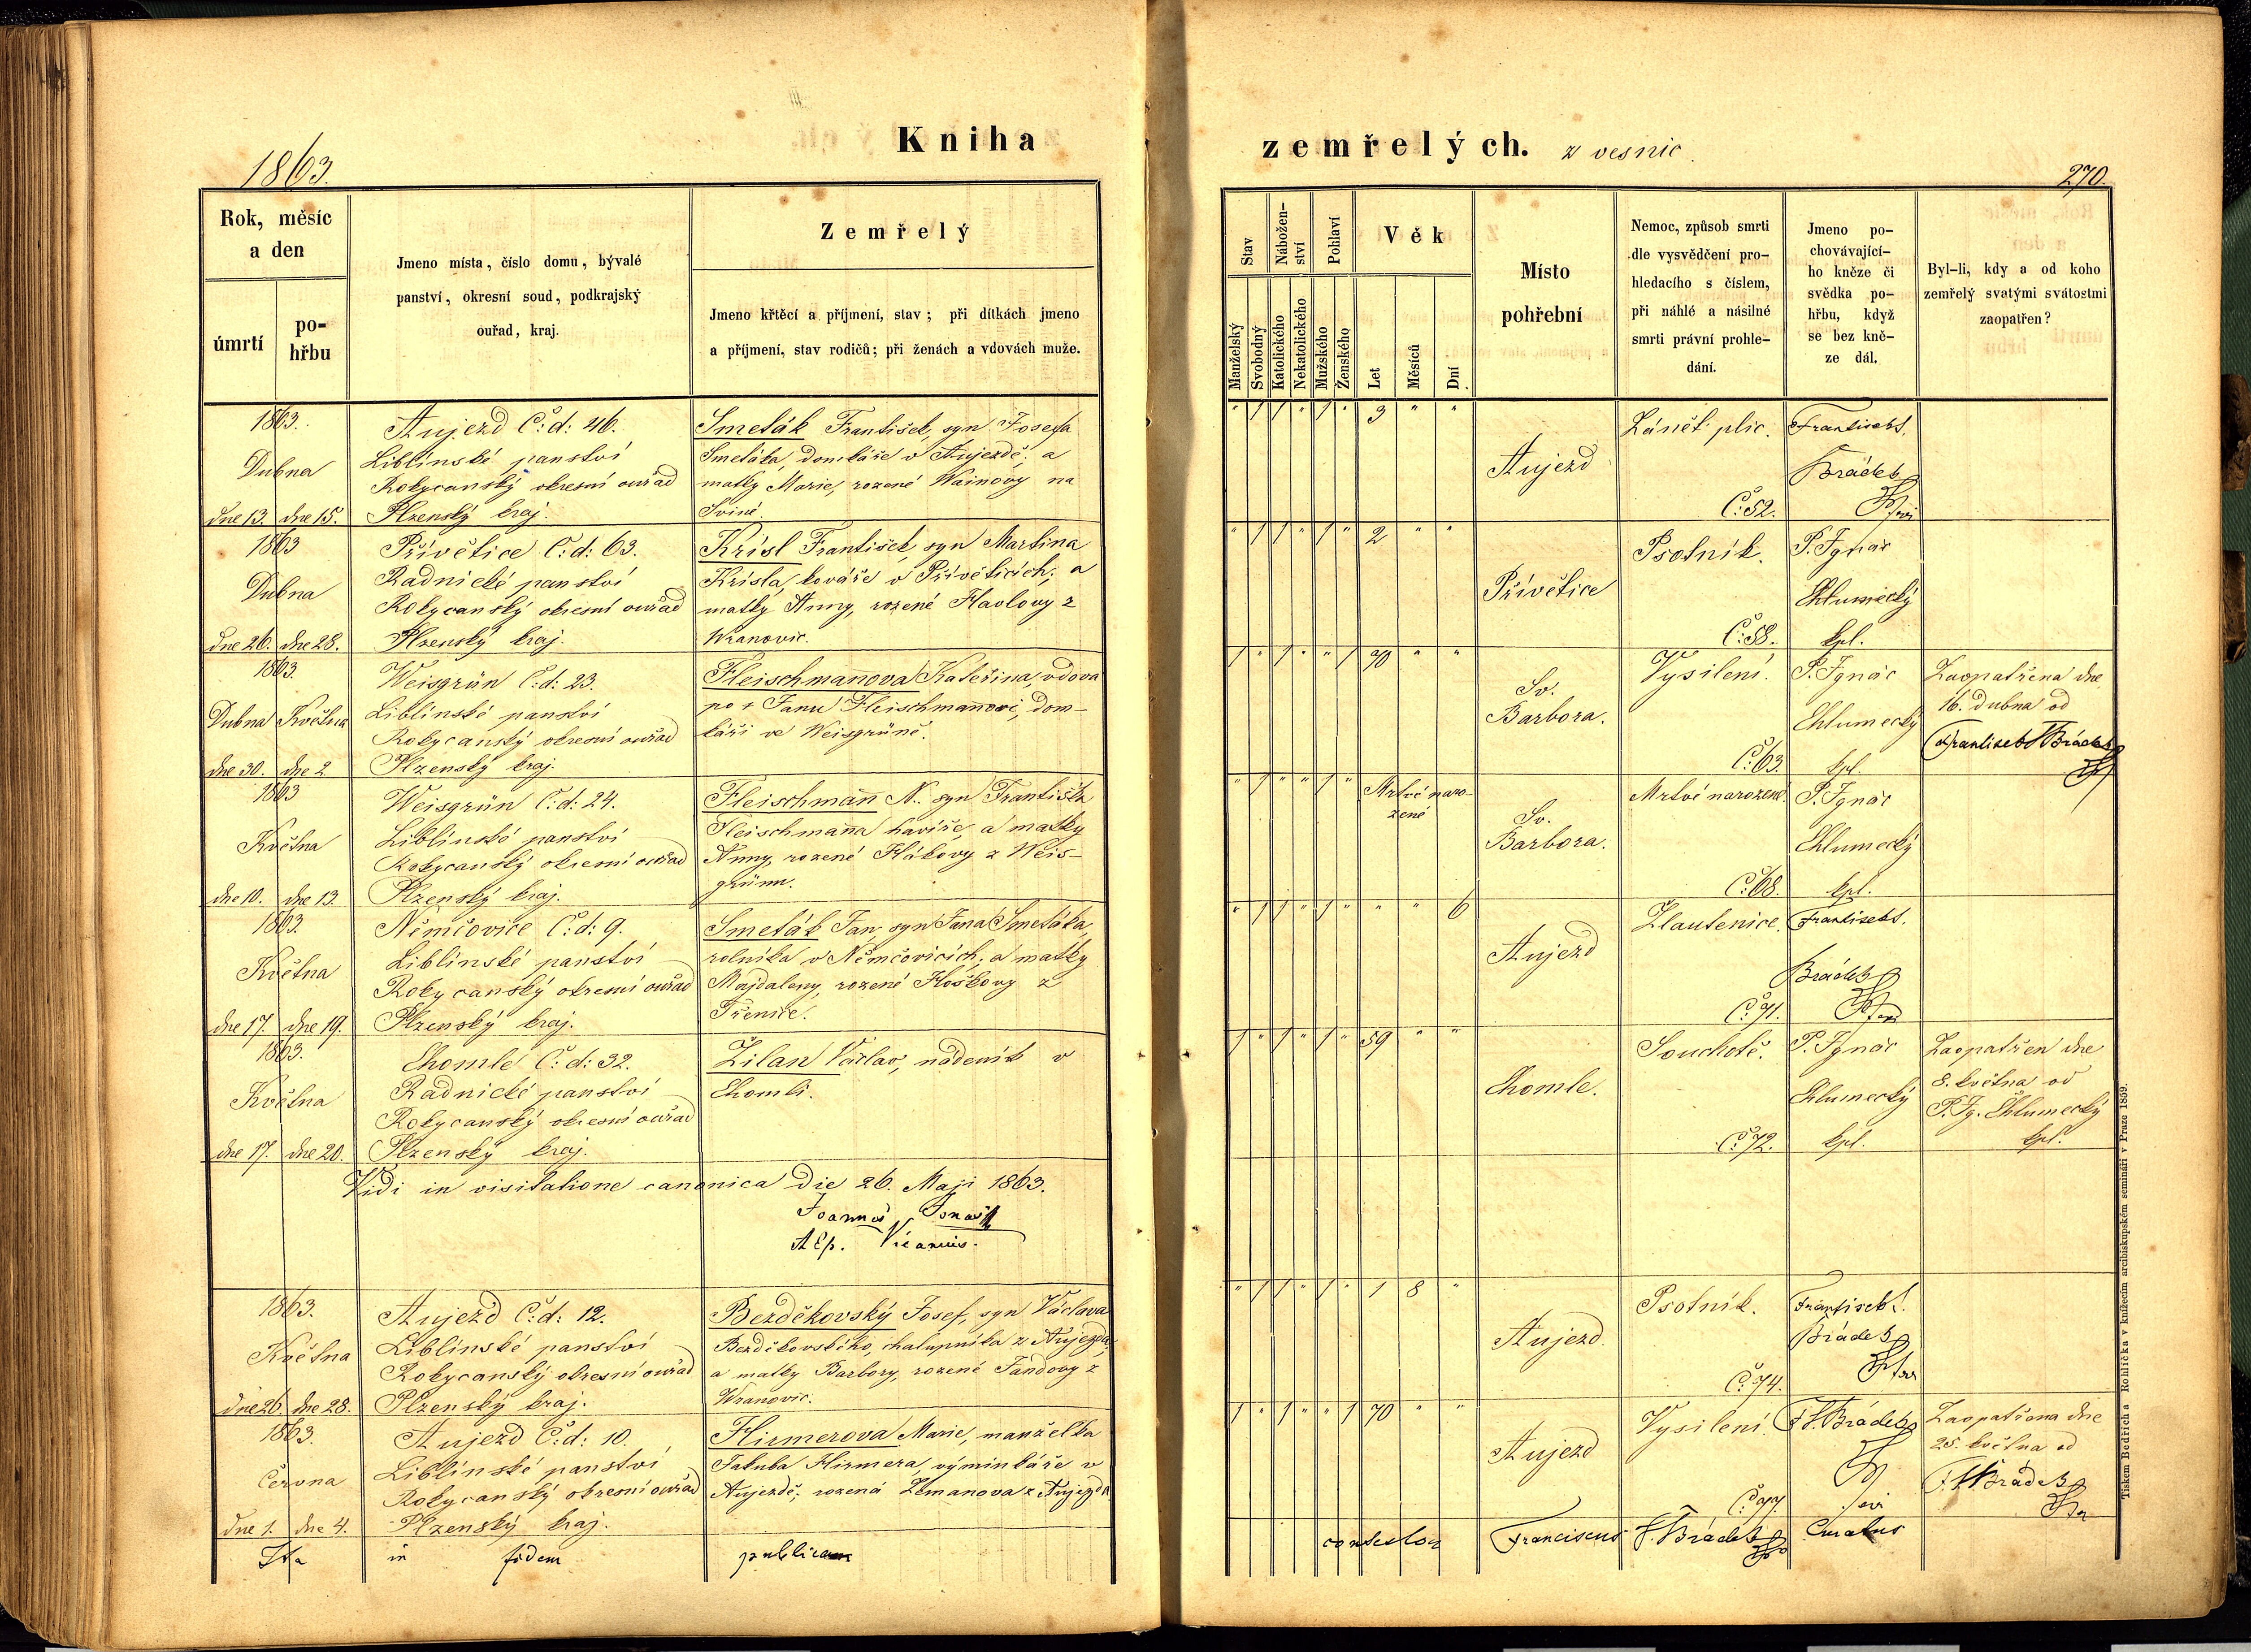 1863.
Kniha
zemřelých. z vesnic.
270.
Rok, měsíc
a den
úmrtí
po-
hřbu
Jmeno místa, číslo domu, bývalé
panství, okresní soud, podkrajský
ouřad, kraj.
Zemřelý
Jmeno křtěcí a příjmení, stav; při dítkách jmeno
a příjmení, stav rodičů; při ženách a vdovách muže.
Stav
Manželský
Svobodný
Nábožen-
ství
Katolického
Nekatolického
Pohlaví
Mužského
Ženského
Věk
Let
Měsíců
Dní
Místo
pohřební
Nemoc, způsob smrti
dle vysvědčení pro-
hledacího s číslem,
při náhlé a násilné
smrti právní prohle-
dání.
Jmeno po-
chovávající-
ho kněze či
svědka po-
hřbu, když
se bez kně-
ze dál.
Byl-li, kdy a od koho
zemřelý svatými svátostmi
zaopatřen?
1863.
Dubna
dne 13. dne 15.
Aujezd Č: d: 46.
Liblínské panství
Rokycanský okresní ouřad
Plzenský kraj.
Smeták František, syn Josefa
Smetáka, domkáře v Aujezdě; a
matky Marie, rozené Wainovy na
Sviné.
" / / " / " 3 " "
Aujezd
Zánět plic.
Č: 52.
František S.
Brádek
1863
Dubna
dne 26. dne 28.
Přívětice Č: d: 63.
Radnické panství
Rokycanský okresní ouřad
Plzenský kraj.
Krisl František, syn Martina
Krisla, kováře v Přívěticích; a
matky Anny, rozené Havlovy z
Wranovic.
" / / " / " 2 " "
Přívětice
Psotník.
Č: 58.
P. Ignác
Chlumecký
kpl.
1863.
Dubna Května
dne 30. dne 2
Weisgrün Č: d: 23.
Liblínské panství
Rokycanský okresní ouřad
Plzenský kraj.
Fleischmanova Kateřina, vdova
po + Janu Fleischmanovi, dom-
káři ve Weisgrüně.
/ " / " " / 70 " "
Sv.
Barbora.
Vysilení.
Č: 63.
P. Ignác
Chlumecký
kpl.
Zaopatřena dne
16. dubna od
František S. Brádek
1863
Května
dne 10. dne 13.
Weisgrün Č: d: 24.
Liblínské panství
Rokycanský okresní ouřad
Plzenský kraj.
Fleischmann N. syn Františka
Fleischmanna havíře, a matky
Anny, rozené Hákovy z Weis-
grünu.
Mrtvě naro-
zené
Sv.
Barbora.
Mrtvě narozené.
Č: 68.
P. Ignác
Chlumecký
kpl.
1863.
Května
dne 17. dne 19.
Němčovice Č: d: 9.
Liblínské panství
Rokycanský okresní ouřad
Plzenský kraj.
Smeták Jan, syn Jana Smetáka,
rolníka v Němčovicích; a matky
Majdaleny, rozené Hoškovy z
" / / " / " " " 6
Aujezd
Žlautenice.
Č: 71.
František S.
Brádek
1863.
Května
dne 17. dne 20.
Chomle Č: d: 32.
Radnické panství
Rokycanský okresní ouřad
Plzenský kraj.
Žilan Václav, nádeník v
Chomli.
/ " / " / " 59 " "
Chomle.
Souchotě.
Č: 72.
P. Ignác
Chlumecký
kpl.
Zaopatřen dne
8. května od
P. Ig. Chlumecký
kpl.
Vidi in visitatione canonica die 26. Maji 1863.
Joannes Jonas
A Ep. Vicarius.
1863.
Května
dne 26. dne 28.
Aujezd Č: d: 12.
Liblínské panství
Rokycanský okresní ouřad
Plzenský kraj.
Bezděkovský Josef, syn Václava
Bezděkovského, chalupníka z Aujezda;
a matky Barbory, rozené Jandovy z
Wranovic.
" / / " / " 1 8 "
Aujezd.
Psotník.
Č: 74.
František S.
Brádek
1863.
Června
dne 1. dne 4.
Aujezd Č: d: 10.
Liblínské panství
Rokycanský okresní ouřad
Plzenský kraj.
Hirmerova Marie, manželka
Jakuba Hirmera, výminkáře v
Aujezdě; rozená Zemanova z Aujezda.
/ " / " " / 70 " "
Aujezd
Vysilení.
Č: 77.
F. S. Brádek
Zaopatřena dne
25. května od
F. S. Brádek
Ita in fidem publicam
contestor Franciscus S. Brádek Curatus
Tiskem Bedřicha Rohlíčka v knížecím arcibiskupském semináři v Praze 1859.